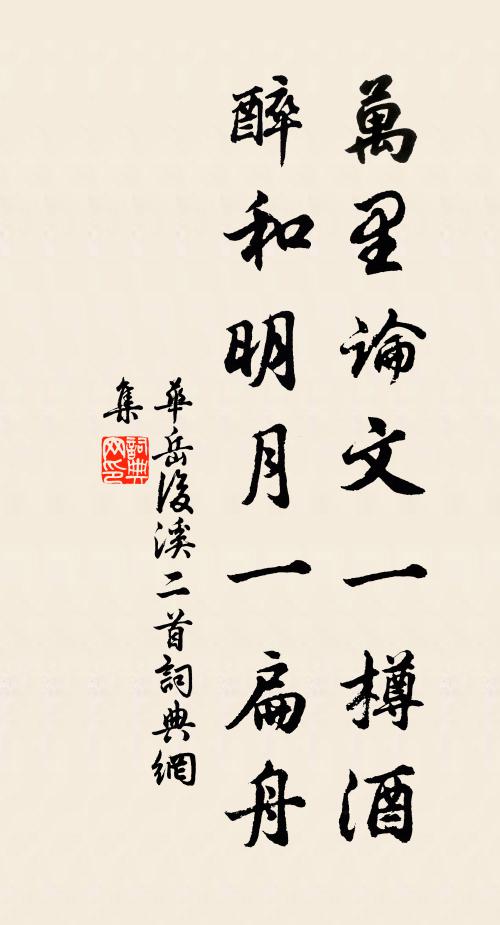 萬里論文一樽酒
醉和明月一扁舟
華岳後溪二首詞典網
集
詞典網印